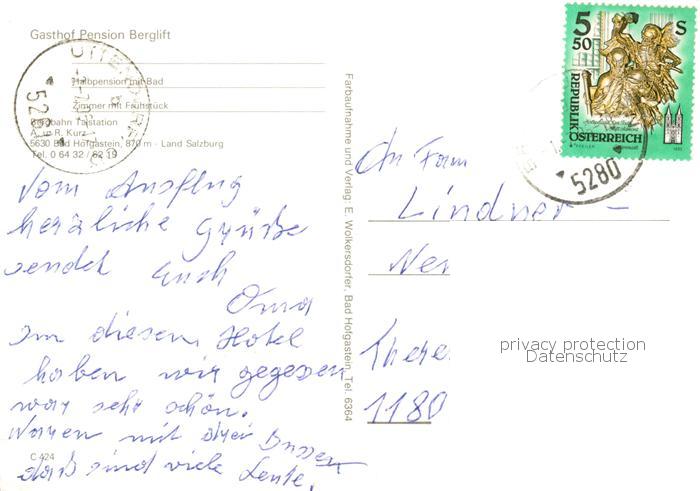 Gasthof Pension Berglift
Halbpension mit Bad
Zimmer mit Frühstück
Bergbahn Talstation
A. u. R. Kurz
5630 Bad Hofgastein, 870 m - Land Salzburg
Tel. 0 64 32 / 62 19
Vom Ausflug
herzliche Grüße
sendet Euch
Oma
Im diesem Hotel
haben wir gegessen
war sehr schön.
Waren mit drei Bussen
daß sind viele Leute.
C 424
Farbaufnahme und Verlag: E. Wolkersdorfer, Bad Hofgastein, Tel. 6364
5 50 S
REPUBLIK
ÖSTERREICH
5280
An Fam
Lindner -
1180
privacy protection
Datenschutz